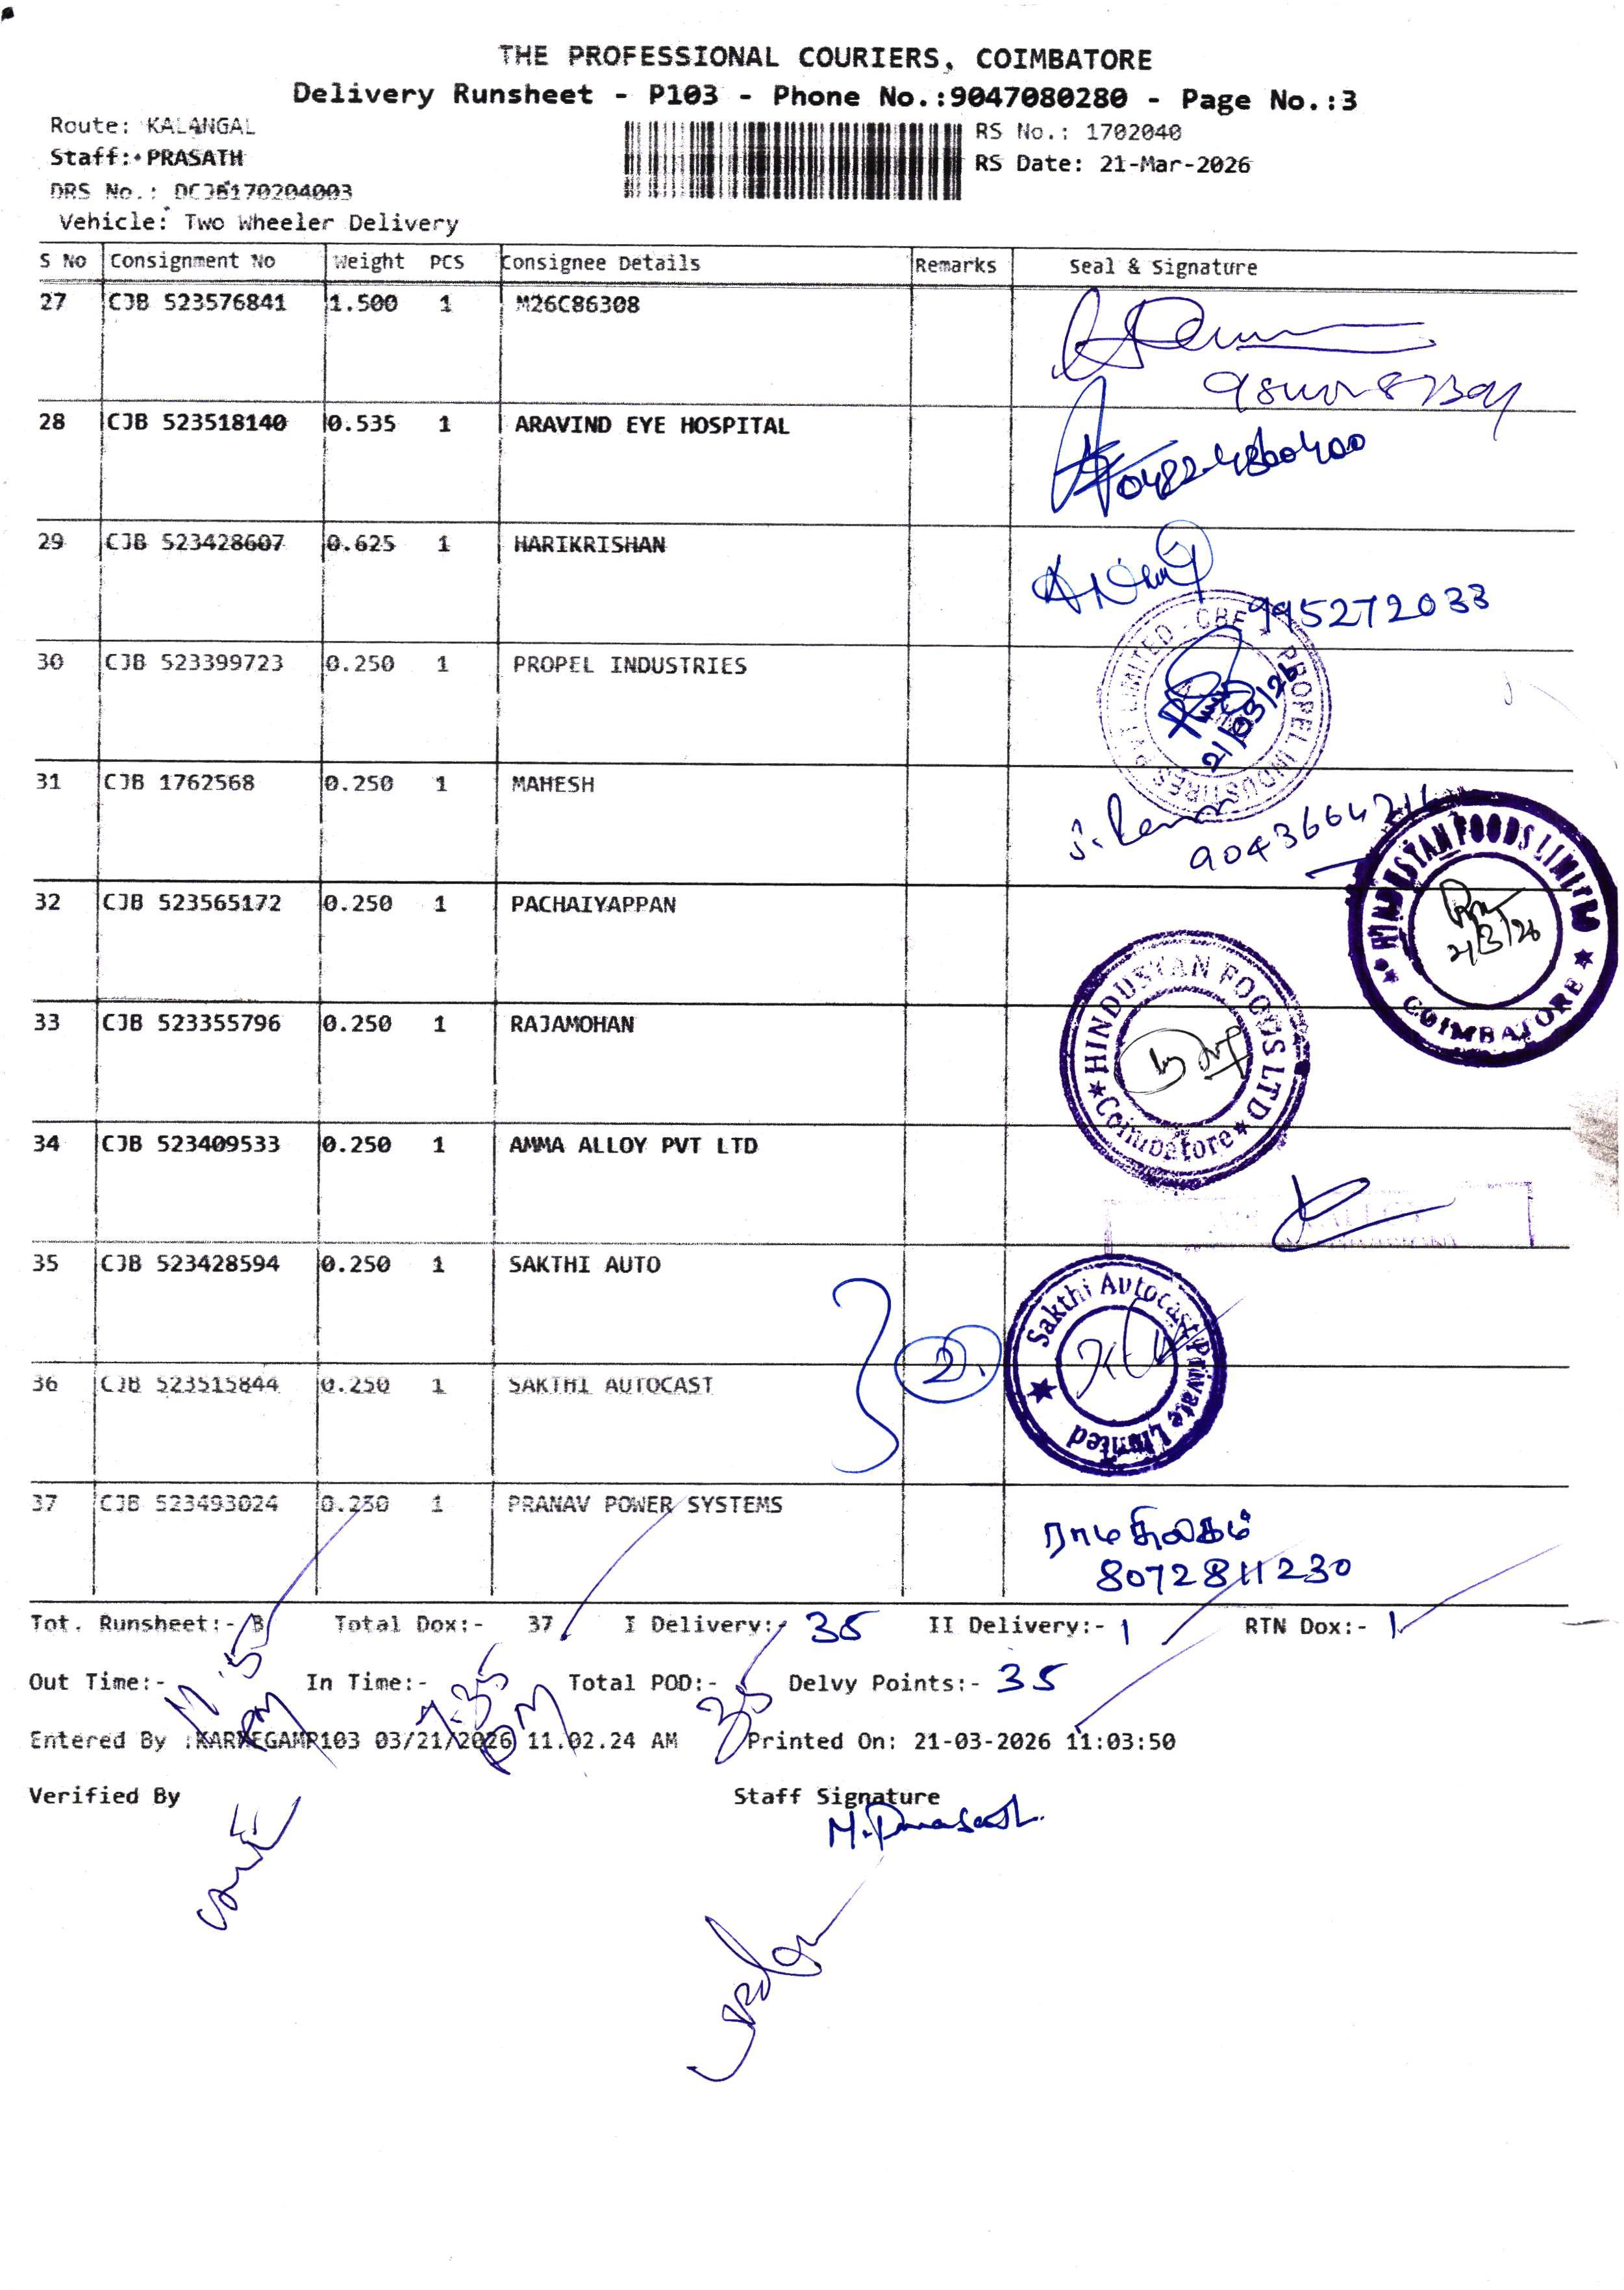 THE PROFESSIONAL COURIERS, COIMBATORE
Delivery Runsheet - P103 - Phone No.:9047080280 - Page No.:3
Route: KALANGAL
RS No.: 1702040
Staff: PRASATH
RS Date: 21-Mar-2026
DRS No.: DCJB170204003
Vehicle: Two Wheeler Delivery
S No Consignment No Weight PCS Consignee Details Remarks Seal & Signature
27 CJB 523576841 1.500 1 M26C86308
28 CJB 523518140 0.535 1 ARAVIND EYE HOSPITAL
29 CJB 523428607 0.625 1 HARIKRISHAN
995272033
30 CJB 523399723 0.250 1 PROPEL INDUSTRIES
PROPEL INDUSTIRES PVT LIMITED - CBE
21/03/26
31 CJB 1762568 0.250 1 MAHESH
HINDUSTAN FOODS LIMITED
COIMBATORE
21/3/26
32 CJB 523565172 0.250 1 PACHAIYAPPAN
HINDUSTAN FOODS LTD
Coimbatore
33 CJB 523355796 0.250 1 RAJAMOHAN
34 CJB 523409533 0.250 1 AMMA ALLOY PVT LTD
35 CJB 523428594 0.250 1 SAKTHI AUTO
Sakthi Autocast Private Limited
2
36 CJB 523515844 0.250 1 SAKTHI AUTOCAST
37 CJB 523493024 0.250 1 PRANAV POWER SYSTEMS
ராமதிலகம்
8072811230
Tot. Runsheet:- Total Dox:- 37 I Delivery:- 35 II Delivery:- 1 RTN Dox:- 1
Out Time:- In Time:- 7.35 PM Total POD:- 35 Delvy Points:- 35
Entered By : 03/21/2026 11.02.24 AM Printed On: 21-03-2026 11:03:50
Verified By Staff Signature
M. Prasath